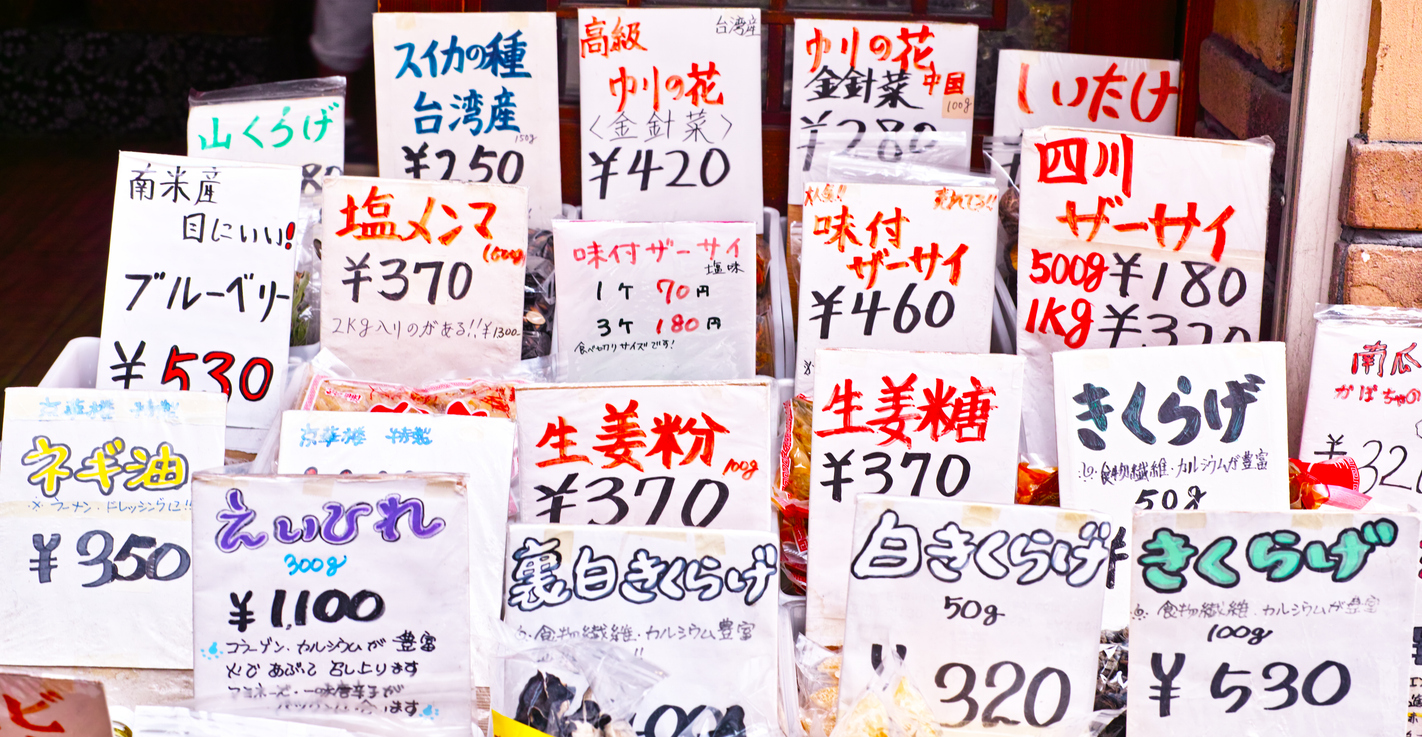 山くらげ
80
スイカの種
台湾産
150g
¥250
高級
台湾産
ゆりの花
〈金針菜〉
¥420
ゆりの花
金針菜
中国
100g
¥280
しいたけ
南米産
目にいい!
ブルーベリー
¥530
塩メンマ
¥370
2Kg入りのがある!!¥1300
味付ザーサイ
塩味
1ケ 70円
3ケ 180円
食べ切りサイズです!
大人気!!
売れてる!!
味付
ザーサイ
¥460
四川
ザーサイ
500g¥180
1Kg¥320
南瓜
かぼちゃの
¥32
ネギ油
※ラーメン・ドレッシングに!!
¥350
えいひれ
300g
¥1,100
コラーゲン・カルシウムが豊富
火であぶって召し上ります
生姜粉
100g
¥370
生姜糖
¥370
きくらげ
食物繊維・カルシウムが豊富
50g
裏白きくらげ
食物繊維・カルシウム豊富
白きくらげ
50g
320
きくらげ
食物繊維・カルシウムが豊富
100g
¥530
ビ